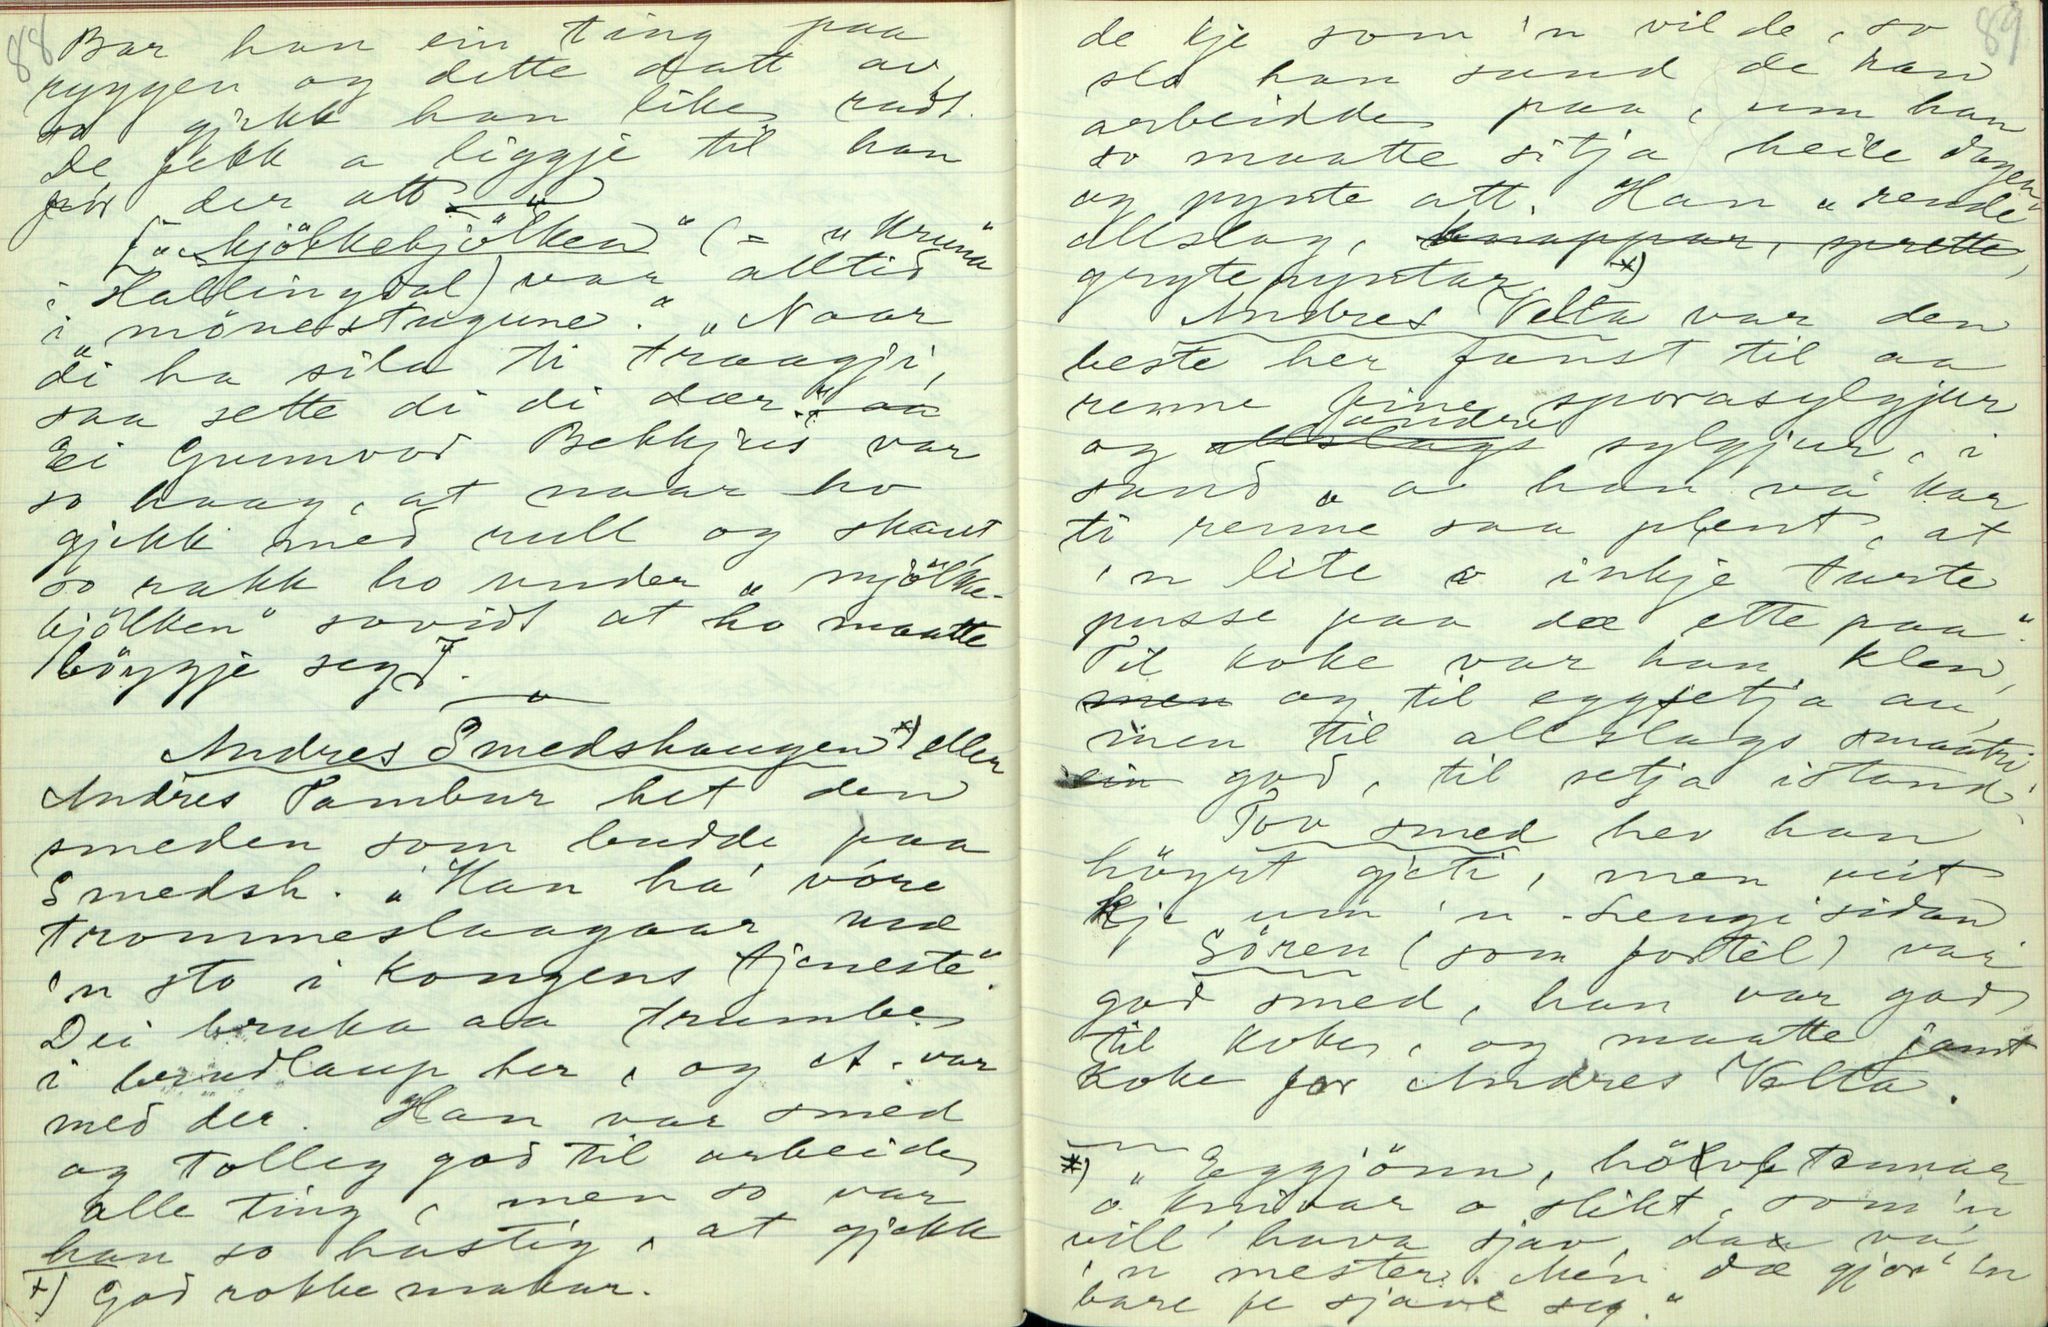 88
Bar han ein ting paa
ryggen og dette datt av,
so gjekk han likes radt.
De fekk a liggje til han
fór der att.
"Skjökkekjölken" (= "Krunä"
i Hallingdal) var alltid
i "mönestugune." "Naar
di ha sila ti traagji,
saa sette di di dær." aa
Ei Gunnvor Bekkjis var
so haag, at naar ho
gjekk med rull og skaut
so rakk ho under "mjölke-
kjölken" sovidt at ho maatte
böyggje seg".
Andres Smedshaugen x) eller
Andres Tambur het den
smeden som budde paa
Smedsh. "Han ha' vóre
trommeslaagaar mæ
'n sto i Kongens tjeneste".
Dei bruka aa trumbe
i brudlaup her, og A. var
med der. Han var smed
og tolleg god til arbeide
alle ting, men so var
han so hastig, at gjekk
x) God rokkemakar.
89
de kje som 'n vilde, so
slo han sund de han
arbeidde paa, um han
so maatte sitja heile dagen
og pynte att. Han "rende"
allslag, knappar, sprette,
gryte pyntar x)
Andres Velta var den
beste her fanst til aa
renne fine sporasylgjur
og allslags andre sylgjur, i
sand "o han va' kar
ti renne saa plent, at
'n lite o inkje turte
pusse paa dæ ette paa".
Til koke var han klen,
men og til eggsetja au,
men til allslags smaatri
ein god, til setja istand.
Tov smed hev han
höyrt gjeti, men veit
kje um 'n - Lengi sidan
Sören (som fortel) var
god smed, han var god
til koke, og maatte jamt
koke for Andres Velta.
x) "Eggjönn, hölvetannar
o knivar o slikt, som 'n
vill' hava sjav, dæ va'
'n mester. Men dæ gjor' 'n
bare fe sjave seg."